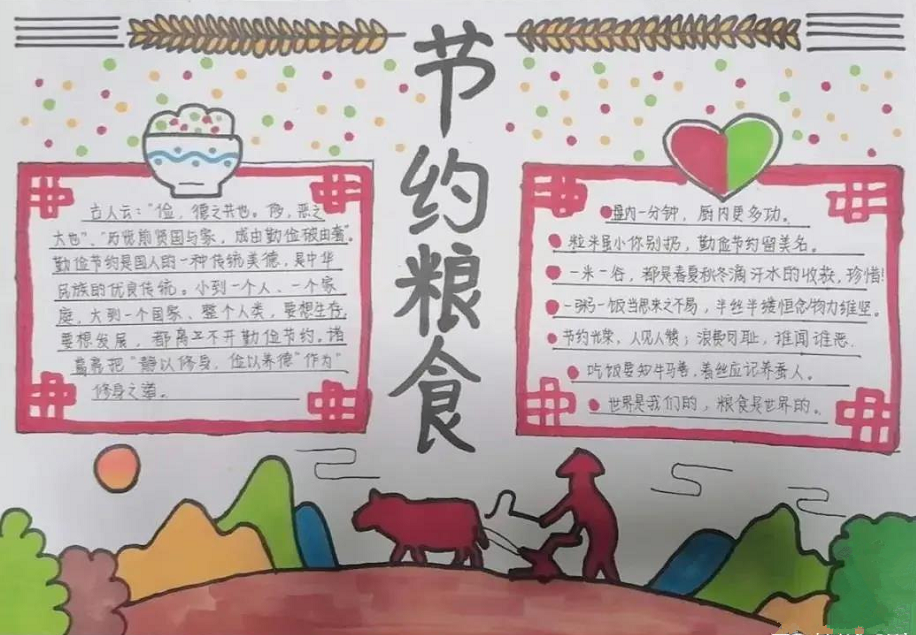 节约粮食
古人云：“俭，德之共也。侈，恶之
大也”、“历览前贤国与家，成由勤俭破由奢”。
勤俭节约是国人的一种传统美德，是中华
民族的优良传统。小到一个人、一个家
庭，大到一个国家、整个人类，要想生存，
要想发展，都离卫不开勤俭节约。诸
葛亮把“静以修身，俭以养德”作为“
修身之道。
盘内一分钟，厨内更多功。
粒米虽小你别扔，勤俭节约留美名。
一米一谷，都是春夏秋冬滴汗水的收获，珍惜！
一粥一饭当思来之不易，半丝半缕恒念物力维坚。
节约光荣，人见人赞；浪费可耻，谁闻谁恶.
吃饭要知牛马善，着丝应记养蚕人。
世界是我们的，粮食是世界的。